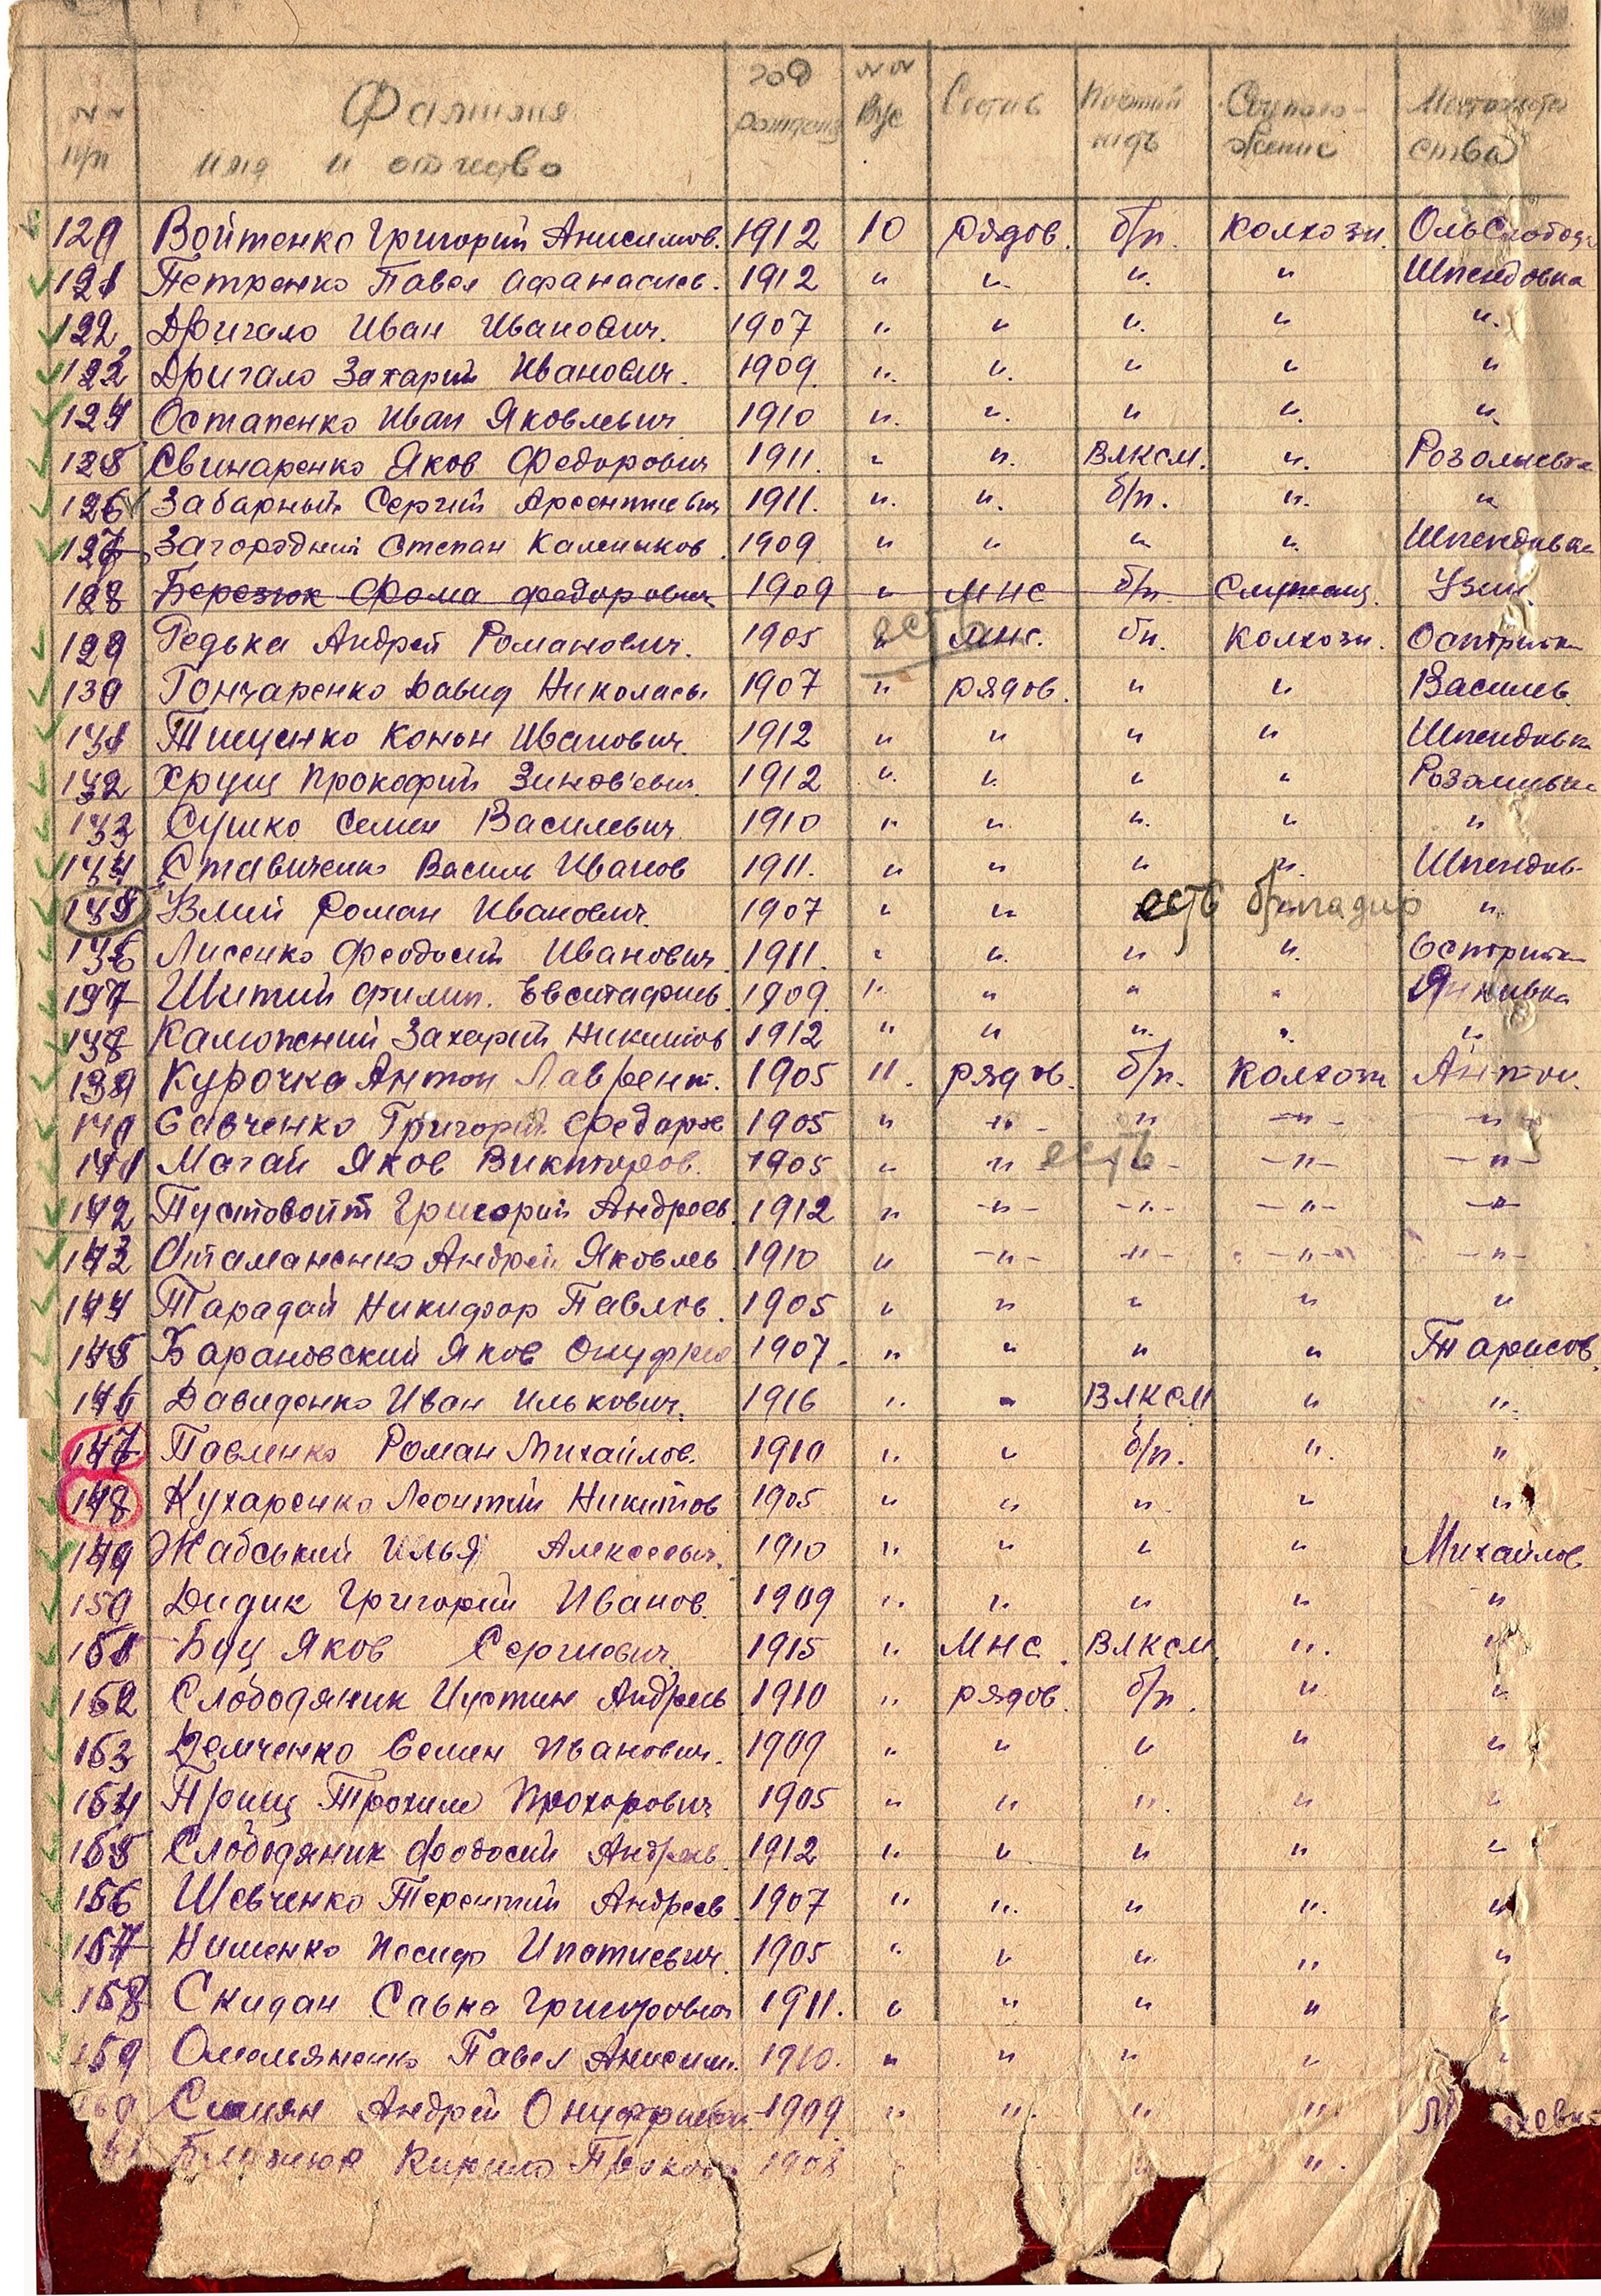 NN п/п Фамилия имя и отчество год рождения NN Вус Состав Партий Соцполо-жение
129 Войтенко Григорий Анисимов. 1912 10 рядов. б/п. колхозн. ОльСлобод
121 Петренко Павел Афанасиев. 1912 " " " " Шпендовка
122 Дригало Иван Иванович. 1907 " " " " "
123 Дригало Захарий Иванович. 1909 " " " " "
124 Остапенко Иван Яковлевич 1910 " " " " "
125 Свинаренко Яков Федорович 1911. " " ВЛКСМ. " Розалиевка
126 Забарный Сергий Арсентиевич 1911. " " б/п. " "
127 Загородний Степан Калеников. 1909 " " " " Шпендовка
128 Березюк Фома Федорович 1909 " МНС б/п. Служащ. Узин
129 Редька Андрей Романович. 1905 " есть МНС. бп. Колхозн. Острийки
130 Гончаренко Давид Николаев. 1907 " рядов. " " Василев.
131 Тищенко Конон Иванович. 1912 " " " " Шпендовка
132 Хрущ Прокофий Зинов'евич. 1912 " " " " Розалиевка
133 Сушко Семен Василевич 1910 " " " " "
134 Ставиченко Василь Иванов 1911. " " " " Шпендов-
135 Узлий Роман Иванович. 1907 " " есть бригадир "
136 Лисенко Феодосий Иванович 1911. " " " " Острийки
137 Шитий Филип. Евстафиев. 1909. " " " " Янкивка
138 Калюжний Захарий Никитов 1912 " " " " "
139 Курочка Антон Лаврент. 1905 11. рядов. б/п. Колхозн Антон.
140 Савченко Григорий Федоров 1905 " " " " "
141 Магай Яков Викторов. 1905 " " есть " " "
142 Пустовойт Григорий Андреев. 1912 " " " " "
143 Атаманенко Андрей Яковлев 1910 " " " " "
144 Тарадай Никифор Павлов. 1905 " " " " "
145 Барановский Яков Онуфрие 1907. " " " " Тарасов.
146 Давиденко Иван Илькович. 1916 " " ВЛКСМ " "
147 Павленко Роман Михайлов. 1910 " " б/п. " "
148 Кухаренко Леонтий Никитов 1905 " " " " "
149 Жабський Илья Алексеевич. 1910 " " " " Михайлов
150 Дидик Григорий Иванов. 1909 " " " " "
151 Буц Яков Сергиевич. 1915 " МНС. ВЛКСМ. " "
152 Слободяник Иустин Андреев 1910 " рядов. б/п. " "
153 Демченко Семен Иванович. 1909 " " " " "
154 Прищ Трохим Прохорович 1905 " " " " "
155 Слободяник Феодосий Андреев. 1912 " " " " "
156 Шевченко Терентий Андреев 1907 " " " " "
157 Нищенко Иосиф Ипатиевич. 1905 " " " " "
158 Скидан Савка Григорович 1911. " " " " "
159 Омельяненко Павел Анисим. 1910. " " " " "
160 Симян Андрей Онуфриевич 1909 " " " "
Кирило 1908 " "